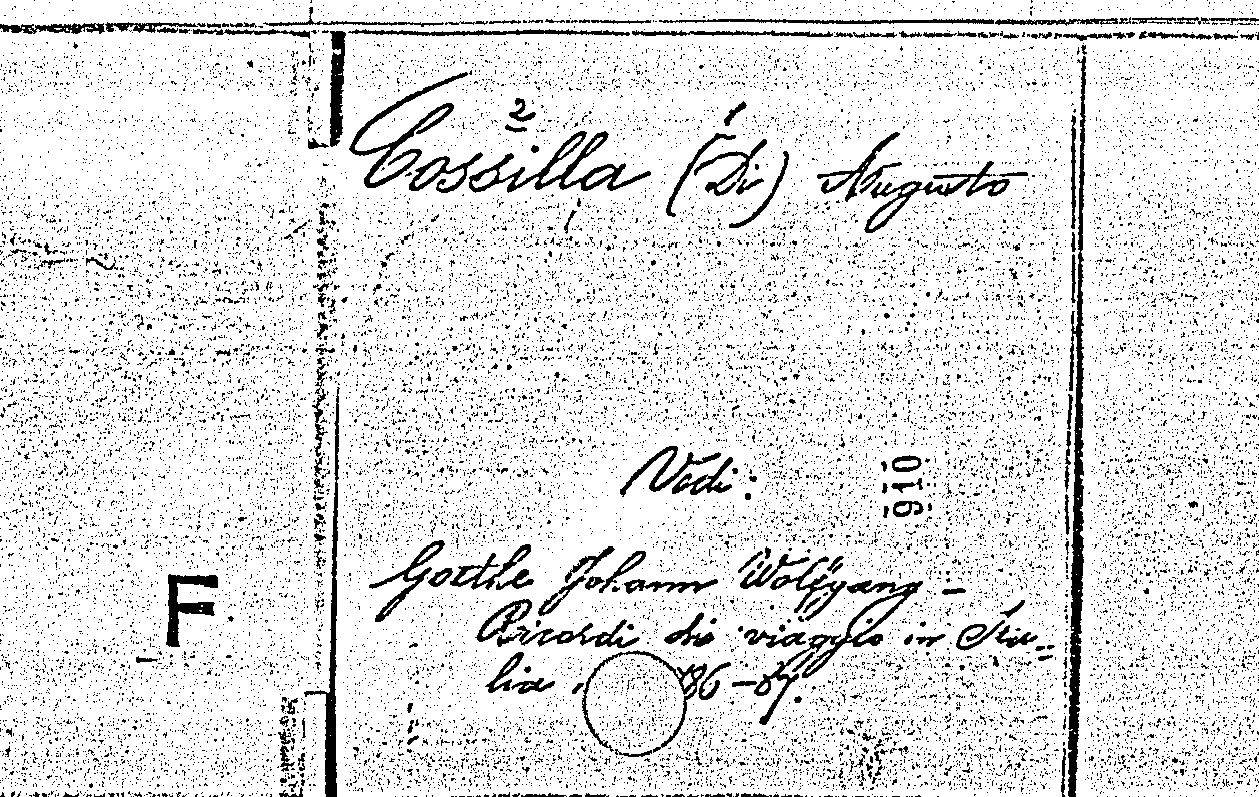 2 1
Cossilla (Di) Augusto
Vedi:
910
Goethe Johann Wolfgang -
Ricordi di viaggio in Ita=
lia . 86-87.
F